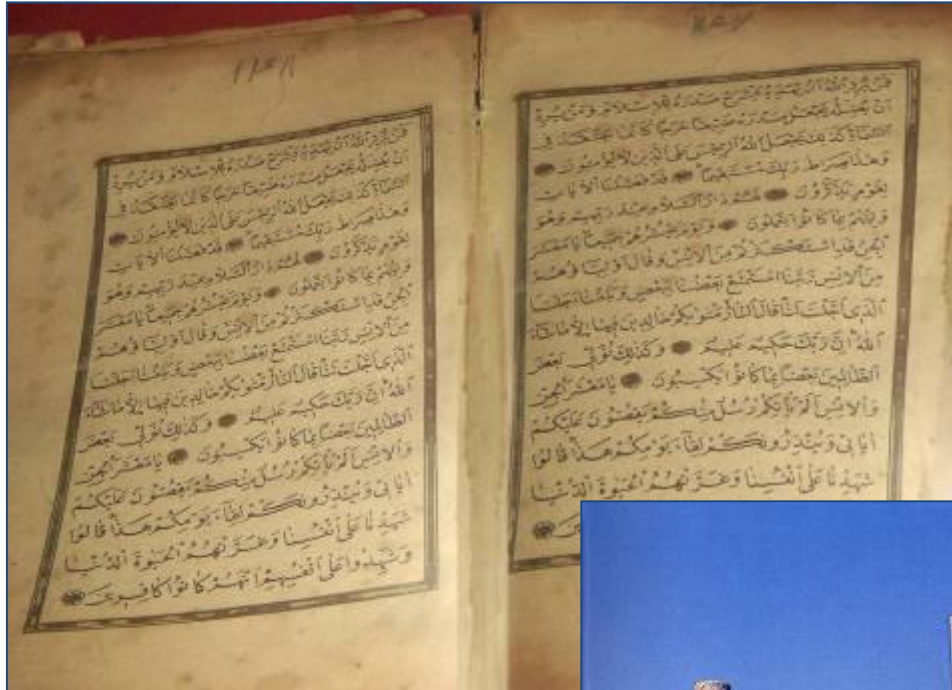 فمن يرد الله ان يهديه يشرح صدره للاسلام ومن يرد
ان يضله يجعل صدره ضيقا حرجا كانما يصعد في
السماء كذلك يجعل الله الرجس على الذين لا يؤمنون
وهذا صراط ربك مستقيما قد فصلنا الايات
لقوم يذكرون لهم دار السلام عند ربهم وهو
وليهم بما كانوا يعملون ويوم يحشرهم جميعا يا معشر
الجن قد استكثرتم من الانس وقال اولياؤهم
من الانس ربنا استمتع بعضنا ببعض وبلغنا اجلنا
الذي اجلت لنا قال النار مثويكم خالدين فيها الا ما شاء
الله ان ربك حكيم عليم وكذلك نولي بعض
الظالمين بعضا بما كانوا يكسبون يا معشر الجن
والانس الم ياتكم رسل منكم يقصون عليكم
اياتي وينذرونكم لقاء يومكم هذا قالوا
شهدنا على انفسنا وغرتهم الحيوة الدنيا
فمن يرد الله ان يهديه يشرح صدره للاسلام ومن يرد
ان يضله يجعل صدره ضيقا حرجا كانما يصعد في
السماء كذلك يجعل الله الرجس على الذين لا يؤمنون
وهذا صراط ربك مستقيما قد فصلنا الايات
لقوم يذكرون لهم دار السلام عند ربهم وهو
وليهم بما كانوا يعملون ويوم يحشرهم جميعا يا معشر
الجن قد استكثرتم من الانس وقال اولياؤهم
من الانس ربنا استمتع بعضنا ببعض وبلغنا اجلنا
الذي اجلت لنا قال النار مثويكم خالدين فيها الا ما شاء
الله ان ربك حكيم عليم وكذلك نولي بعض
الظالمين بعضا بما كانوا يكسبون يا معشر الجن
والانس الم ياتكم رسل منكم يقصون عليكم
اياتي وينذرونكم لقاء يومكم هذا قالوا
شهدنا على انفسنا وغرتهم الحيوة الدنيا
وشهدوا على انفسهم انهم كانوا كافرين